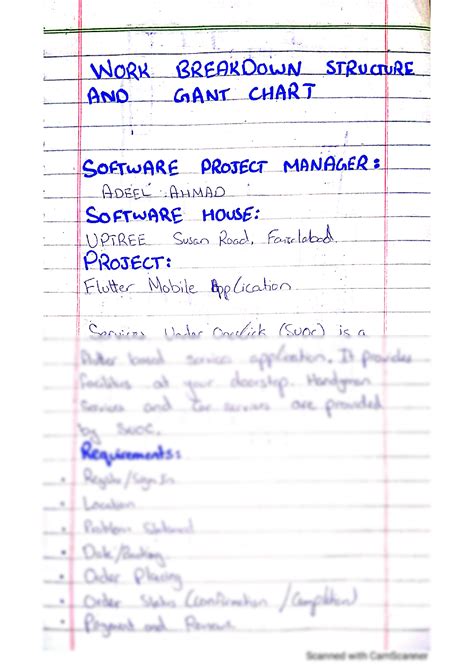 WORK BREAKDOWN STRUCTURE
AND GANT CHART
SOFTWARE PROJECT MANAGER:
ADEEL AHMAD
SOFTWARE HOUSE:
UPTREE Susan Road, Faisalabad.
PROJECT:
Flutter Mobile Application
Services Under Oneclick (SUOC) is a
flutter based services application. It provides
facilities at your doorstep. Handyman
Services and Car services are provided
by SUOC.
Requirements:
• Register/Sign In
• Location
• Problem
• Date/Booking
• Order Placing
• Order Status (Confirmation / Completion)
• Payment and Reviews.
Scanned with CamScanner